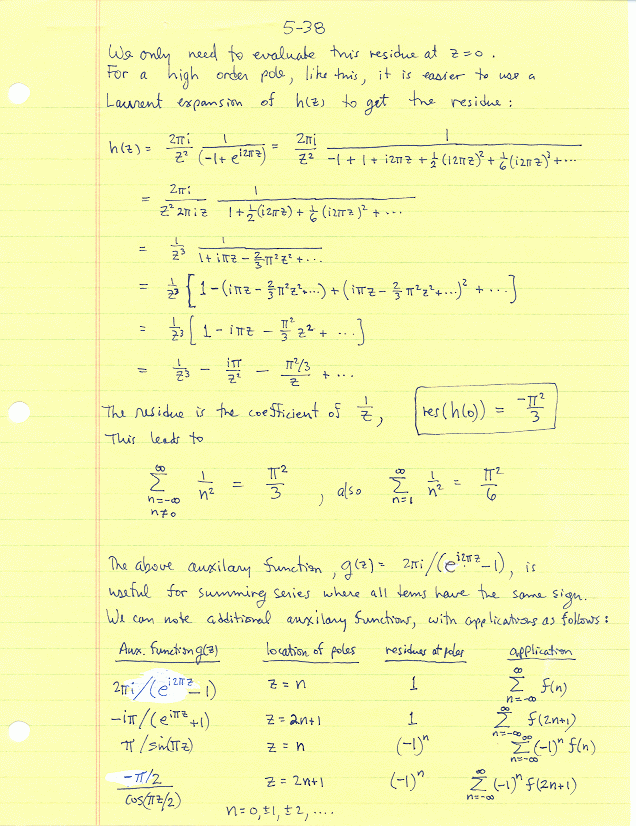 5-38
We only need to evaluate this residue at z=0.
For a high order pole, like this, it is easier to use a
Laurent expansion of h(z) to get the residue:
h(z) = 2πi/z² 1/(-1+e^{i2πz}) = 2πi/z² 1/(-1+1+i2πz+½(i2πz)²+⅙(i2πz)³+⋯)
= 2πi/(z² 2πi z) 1/(1+½(i2πz)+⅙(i2πz)²+⋯)
= 1/z³ 1/(1+iπz-⅔π²z²+⋯)
= 1/z³ {1-(iπz-⅔π²z²+⋯)+(iπz-⅔π²z²+⋯)²+⋯]
= 1/z³ [1-iπz-π²/3 z²+⋯]
= 1/z³ - iπ/z² - π²/3/z + ⋯
The residue is the coefficient of 1/z, res(h(0)) = -π²/3
This leads to
∑_{n=-∞ n≠0}^{∞} 1/n² = π²/3, also ∑_{n=1}^{∞} 1/n² = π²/6
The above auxilary function, g(z) = 2πi/(e^{i2πz}-1), is
useful for summing series where all terms have the same sign.
We can note additional auxilary functions, with applications as follows:
Aux. Function g(z) location of poles residues at poles application
2πi/(e^{i2πz}-1) z=n 1 ∑_{n=-∞}^{∞} f(n)
-iπ/(e^{iπz}+1) z=2n+1 1 ∑_{n=-∞}^{∞} f(2n+1)
π/sin(πz) z=n (-1)^n ∑_{n=-∞}^{∞} (-1)^n f(n)
-π/2/cos(πz/2) z=2n+1 (-1)^n ∑_{n=-∞}^{∞} (-1)^n f(2n+1)
n=0,±1,±2,....